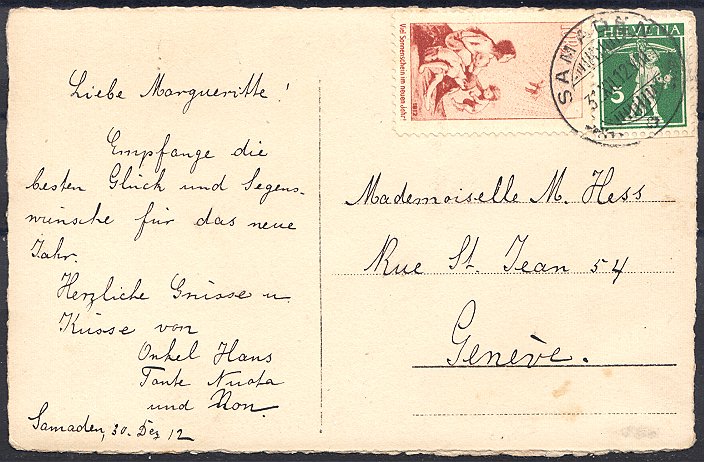 Liebe Margueritte!
Empfange die
besten Glück und Segens-
wünsche für das neue
Jahr.
Herzliche Grüsse u
Küsse von
Onkel Hans
Tante Nuota
und Non.
Samaden, 30. Dez 12
Viel Sonnenschein im neuen Jahr!
1912
HELVETIA
5
SAMADEN
Mademoiselle M. Hess
Rue St. Jean 54
Genève.